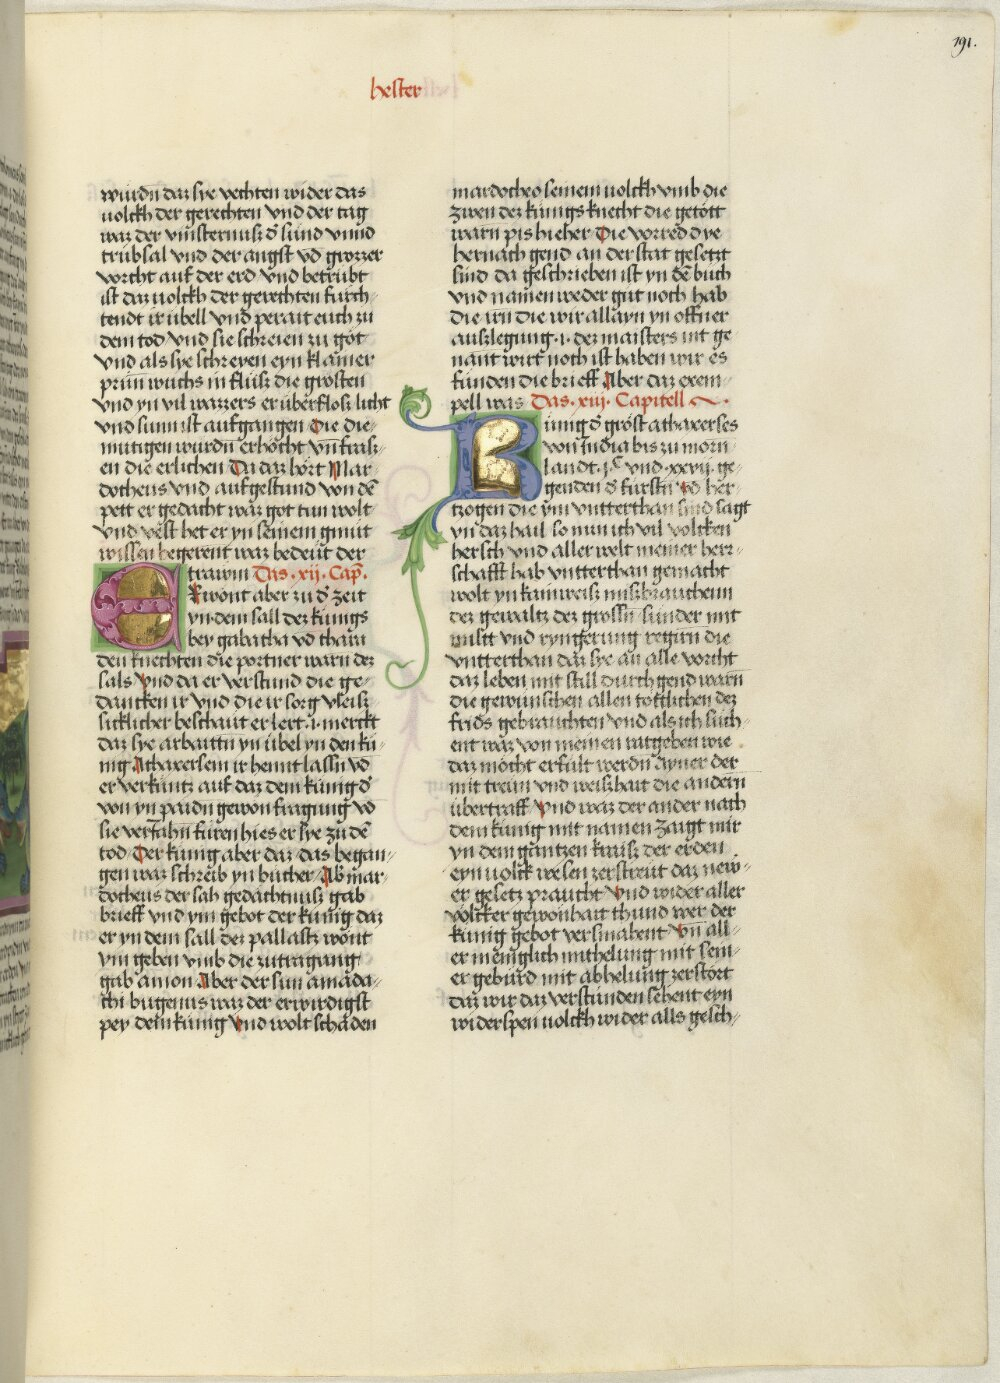 191.
hester
wurdn daz sye vechten wider das
uolckh der gerechten vnd der tag
waz der vinsternusz d' sund vnnd
trubsal vnd der angst vo grozzer
vorcht auf der erd vnd betrubt
ist daz uolckh der gerechten furch-
tendt ir ubell vnd perait euch zu
dem tod vnd sie schreien zu got
vnd als sye schreyen eyn klainer
prun wuchs in flusz die grosten
vnd yn vil wazzers er uberflosz licht
vnd sunn ist aufgangen Die die-
mutigen wurdn erhocht vn frasz-
en die erlichen Da daz hort Mar-
docheus vnd aufgestund von de
pett er gedacht waz got tun wolt
vnd vest het er yn seinem gmut
wissen begerent waz bedeut der
trawm Das .xij. Cap.
Er wont aber zu d' zeit
yn dem sall dez kunigs
bey gabatha vo thara
den knechten die portner warn dez
sals Vnd da er verstund die ge-
dancken ir vnd die ir sorg vleisz
sicklicher beschaut er lert .i. merckt
daz sye arbaittn yn ubel yn den ku-
nig Athaxersem ir hennt lassn vo
er verkuntz auf daz dem kunig d'
von yn paidn gewon fragung vo
sie verjahn furen hies er sye zu de
tod Der kunig aber daz das began-
gen waz schreib yn bucher Ab mar-
docheus der sach gedachtnusz gab
brieff vnd ym gebot der kunig daz
er yn dem sall dez pallastz wont
ym geben vmb die zutragung
gab amon Aber der sun amada-
thi bugenus waz der erwirdigst
pey dem kunig Vnd wolt schaden
mardocheo seinem uolckh vmb die
zwen dez kunigs knecht die getott
warn pis hieher Die vorred dye
hernach gend an der stat gesetzt
sind da geschrieben ist yn de buch
vnd namen weder gut noch hab
die irn die wir allayn yn offner
auszlegung .i. dez maisters nit ge
nant wirt noch ist haben wir es
funden die brieff Aber daz exem-
pell was Das .xiij. Capitell
Kunig d' grost athaxerses
von India bis zu morn
landt .j.c vnd .xxvij. ge-
genden d' furstn vo her-
tzogen die ym vntterthan sind sagt
yn daz hail so nun ich vil volcken
hersch vnd aller welt meiner herr-
schafft hab vntterthan gemacht
wolt yn kainweisz miszbrauchenn
dez gewaltz der grossn sunder mit
miltt vnd ryngerung regirn die
vntterthan daz sye an alle vorcht
daz leben mit still durchgend warn
die gewunschen allen totlichen dez
frids gebrauchten vnd als ich such-
ent waz von meinen ratgeben wie
daz mocht erfult werdn ayner der
mit treun vnd weiszhait die andern
ubertraff Vnd waz der ander nach
dem kunig mit namen zaigt mir
yn dem gantzen kraisz der erden
eyn uolck wesen zerstreut daz new-
er gesetz praucht Vnd wider aller
volcker gewonhait thund wer der
kunig gebot versmahent Vn all-
er meniglich mithelung mit sein-
er geburd mit abhelung zerstort
daz wir daz verstunden sehent eyn
widerspen uolckh wider alls gesch-